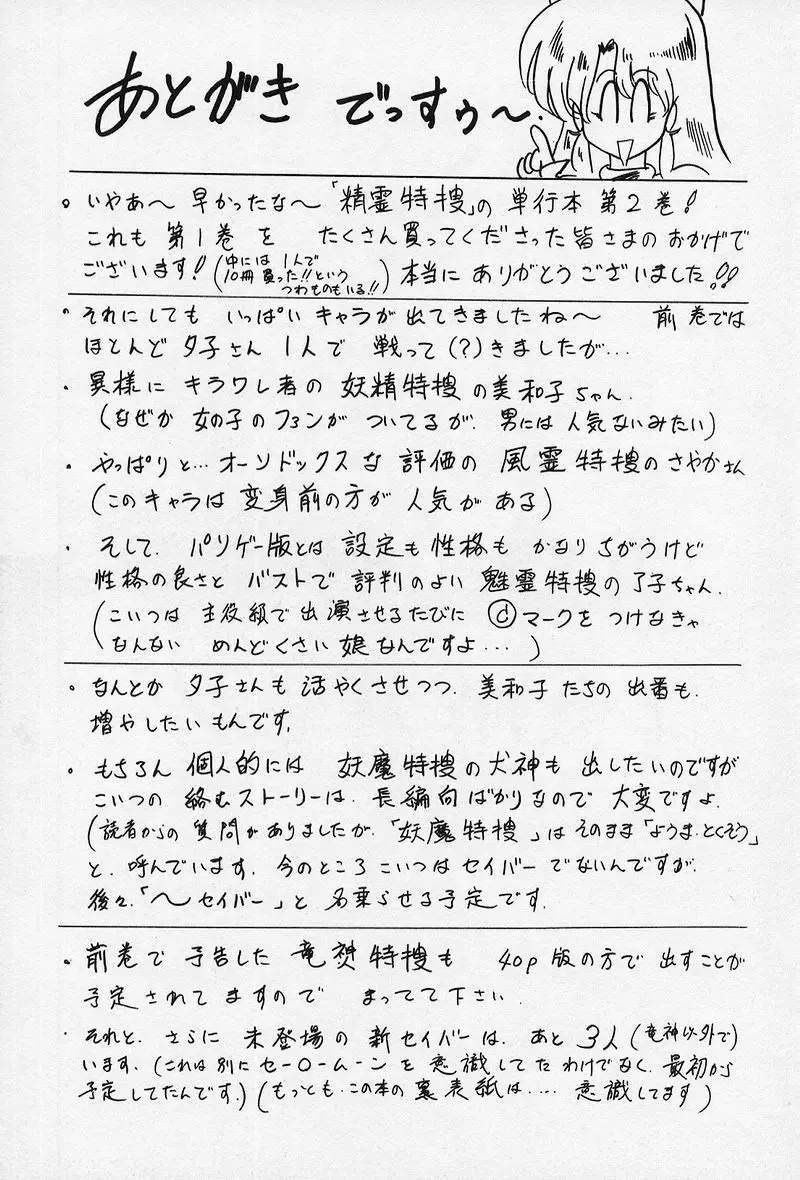 あとがき でっすぅ〜.
・いやあ〜 早かったな〜「精霊特捜」の 単行本 第2巻!
これも 第1巻 を たくさん買ってくださった皆さまのおかげで
ございます!(中には 1人で
10冊買った!!という
つわものもいる!!) 本当に ありがとうございました!!
・それにしても いっぱい キャラが出てきましたね〜 前巻では
ほとんど 夕子さん 1人で 戦って(?)きましたが…
・異様に キラワレ者の 妖精特捜の美和子ちゃん.
(なぜか 女の子のファンが ついてるが. 男には 人気ないみたい)
・やっぱりと… オーソドックスな 評価の 風霊特捜のさやかさん
(このキャラは 変身前の方が 人気が ある)
・そして. パソゲー版とは 設定も 性格も かなりちがうけど
性格の良さと バストで 評判のよい 魅霊特捜の了子ちゃん.
(こいつは 主役級で 出演させるたびに Ⓒマークを つけなきゃ
なんない めんどくさい 娘なんですよ…)
・なんとか 夕子さんも 活やくさせつつ. 美和子たちの 出番も.
増やしたいもんです.
・もちろん 個人的には 妖魔特捜の犬神も 出したいのですが
こいつの 絡むストーリーは. 長編向ばかりなので 大変ですよ.
(読者からの 質問がありましたが.「妖魔特捜」は そのまま「ようま・とくそう」
と. 呼んでいます. 今のところ こいつは セイバーでないんですが.
後々.「〜セイバー」と 名乗らせる予定です.
・前巻で 予告した 竜神特捜も 40p版の方で 出すことが
予定されてますので まってて下さい.
・それと. さらに 未登場の 新セイバーは. あと 3人(竜神以外で)
います.(これは別に セー○ームーンを 意識してたわけでなく. 最初から
予定してたんです.)(もっとも・この本の 裏表紙は…. 意識してます)